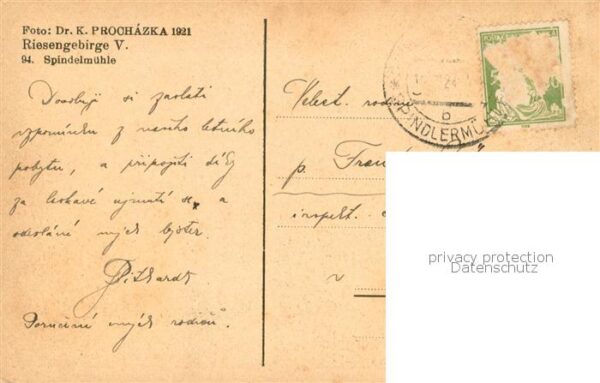 Foto: Dr. K. PROCHÁZKA 1921
Riesengebirge V.
94. Spindelmühle
Dovoluji si zaslati
vzpomínku z našeho letního
pobytu, a připojiti díky
za laskavé ujmutí se a
odeslání mých
Poručení mých rodičů.
Velect. rodina
p. Fran
inspekt.
v
SPINDLERMÜ
b
24
privacy protection
Datenschutz